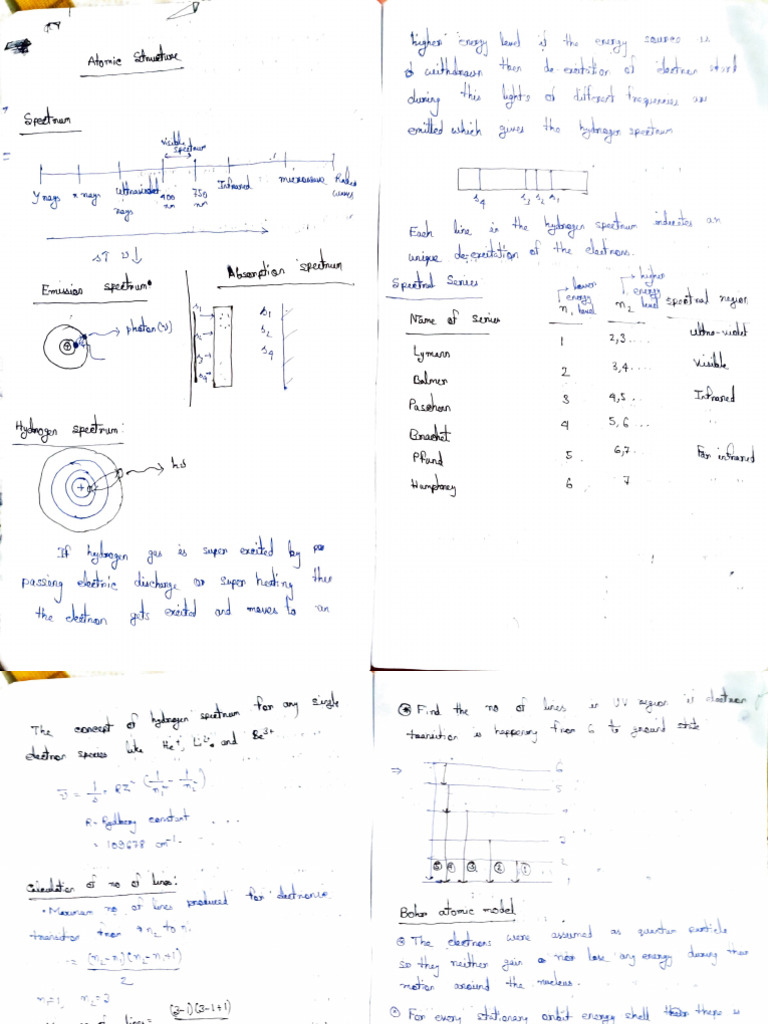 Atomic Structure
Spectrum
visible
spectrum
γ rays
x rays
ultraviolet
rays
400
nm
750
nm
Infrared
microwave
Radio
waves
λ↑ ν↓
Emission spectrum
Absorption spectrum
photon (ν)
λ1
λ2
λ4
Hydrogen spectrum:
hν
If hydrogen gas is super excited by
passing electric discharge or super heating then
the electron gets excited and moves to an
higher energy level if the energy source is
withdrawn then de-excitation of electron
during this lights of different frequencies are
emitted which gives the hydrogen spectrum
λ4 λ3 λ2 λ1
Each line in the hydrogen spectrum indicates an
unique de-excitation of the electrons.
Spectral Series
lower
energy
level
higher
energy
level
Name of Series n1 n2 spectral region
Lymann 1 2,3... ultra-violet
Balmer 2 3,4.... Visible
Paschern 3 4,5.. Infrared
Bracket 4 5,6... "
Pfund 5. 6,7... Far infrared
Humphrey 6 7 " "
The concept of hydrogen spectrum for any single
electron species like He+, Li2+ and Be3+
ν̅ = 1/λ = RZ² (1/n1² - 1/n2²)
R - Rydberg constant
= 109678 cm-1.
Calculation of no of lines:
• Maximum no. of lines produced for electronic
transition from n2 to n1
= (n2-n1)(n2-n1+1)
2
n1=1, n2=3
lines = (3-1)(3-1+1)
Find the no of lines in UV region if electron
transition is happening from 6 to ground state
⇒
6
5
4
3
2
1
⑤ ④ ③ ② ①
Bohr atomic model
The electrons were assumed as quanter particle
so they neither gain nor lose any energy during their
motion around the nucleus.
For every stationary orbit energy shell there is